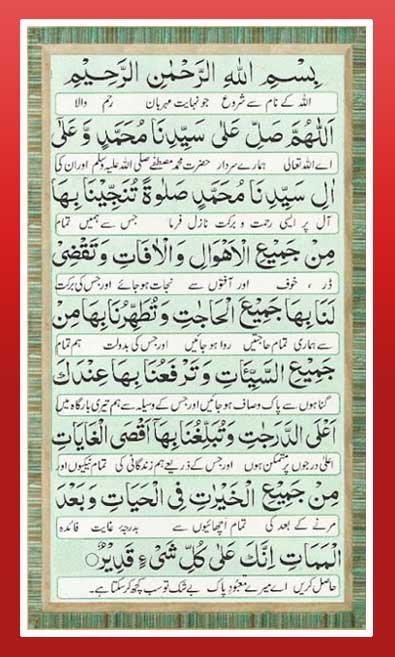 بِسْمِ اللهِ الرَّحْمٰنِ الرَّحِيْمِ
اللہ کے نام سے شروع جو نہایت مہربان رحم والا
اَللّٰهُمَّ صَلِّ عَلٰى سَيِّدِنَا مُحَمَّدٍ وَّ عَلٰٓى
اے اللہ تعالی ہمارے سردار حضرت محمد مصطفےٰ صلی اللہ علیہ وسلم اور ان کی
اٰلِ سَيِّدِنَا مُحَمَّدٍ صَلٰوةً تُنَجِّيْنَا بِهَا
آل پر ایسی رحمت و برکت نازل فرما جس سے ہمیں تمام
مِنْ جَمِيْعِ الْاَهْوَالِ وَ الْاٰفَاتِ وَ تَقْضِىْ
ڈر ، خوف اور آفتوں سے نجات ہو جائے اور جس کی برکت
لَنَا بِهَا جَمِيْعَ الْحَاجٰتِ وَ تُطَهِّرُنَا بِهَا مِنْ
سے ہماری تمام حاجتیں روا ہو جائیں اور جس کی بدولت ہم تمام
جَمِيْعِ السَّيِّاٰتِ وَ تَرْفَعُنَا بِهَا عِنْدَكَ
گناہوں سے پاک وصاف ہو جائیں اور جس کے وسیلہ سے ہم تیری بارگاہ میں
اَعْلَى الدَّرَجٰتِ وَ تُبَلِّغُنَا بِهَآ اَقْصَى الْغَايَاتِ
اعلیٰ درجوں پر متمکن ہوں اور جس کے ذریعے ہم زندگانی کی تمام نیکیوں اور
مِنْ جَمِيْعِ الْخَيْرٰتِ فِى الْحَيَاتِ وَ بَعْدَ
مرنے کے بعد کی تمام اچھائیوں سے بدرجۂ غایت فائدہ
الْمَمَاتِ اِنَّكَ عَلٰى كُلِّ شَىْءٍ قَدِيْرٌ
حاصل کریں اے میرے معبود پاک بے شک تو سب کچھ کر سکتا ہے۔